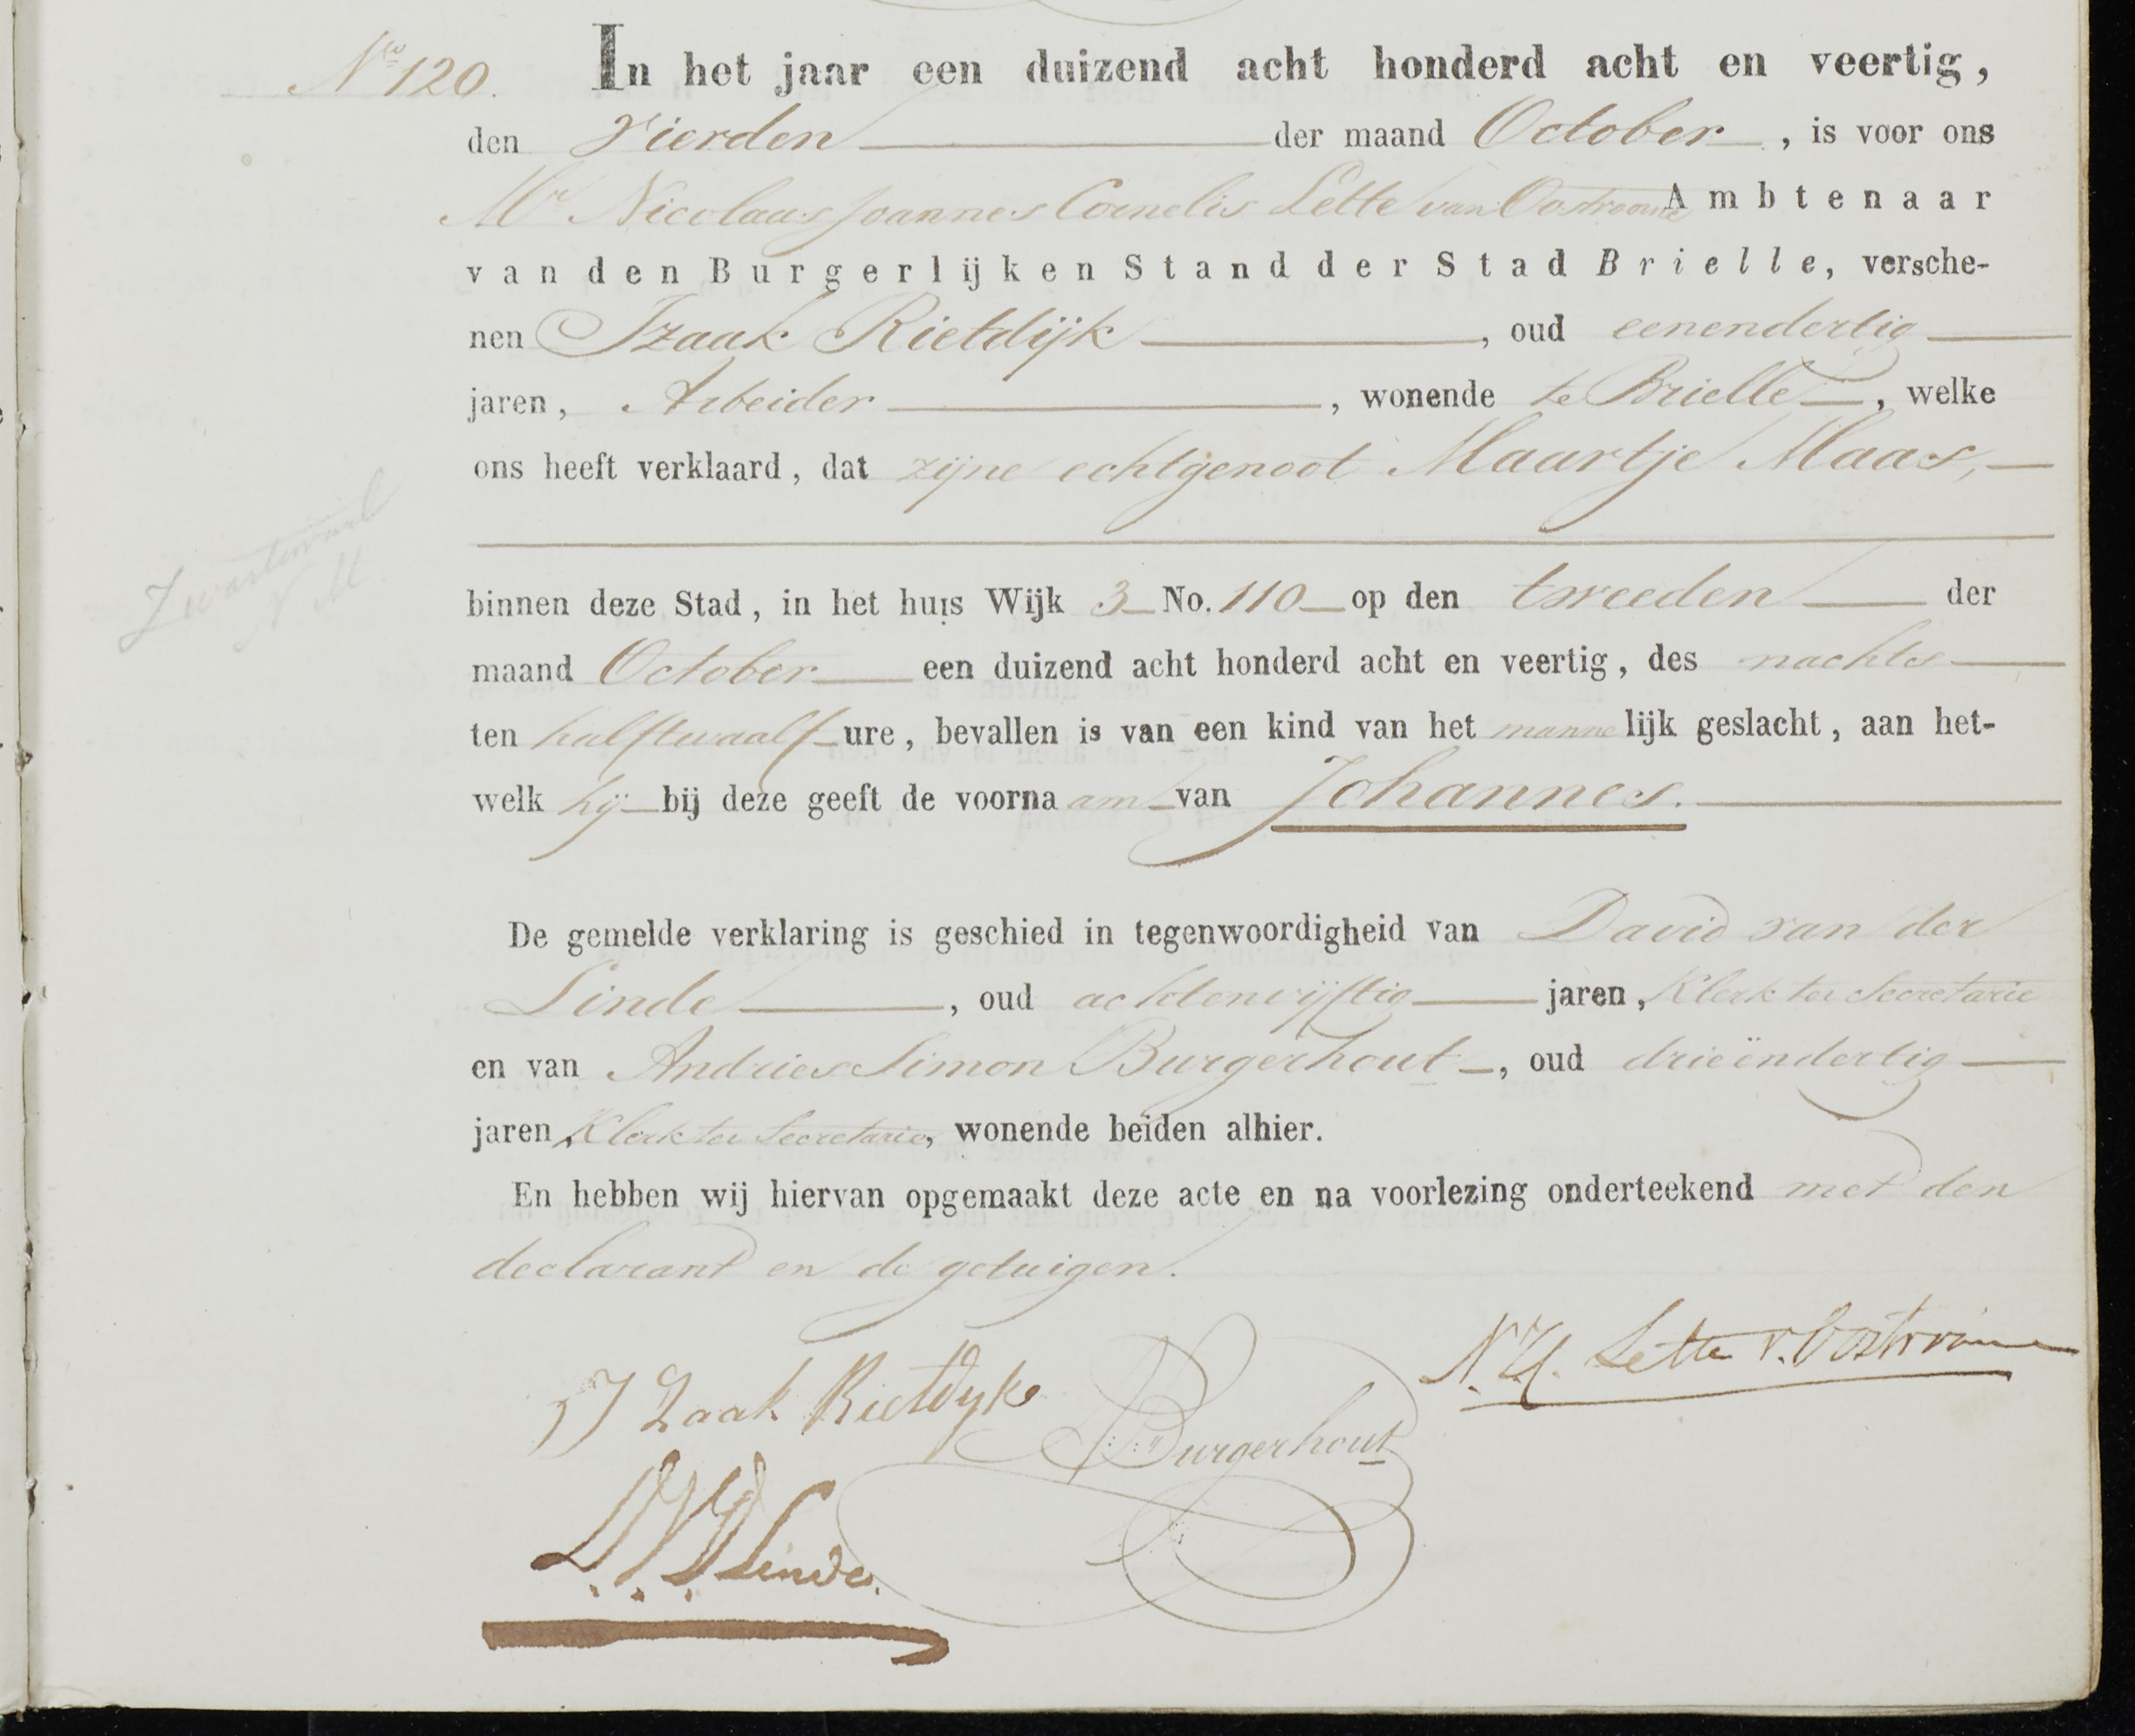 No 120. In het jaar een duizend acht honderd acht en veertig,
den Vierden der maand October, is voor ons
Mr Nicolaas Joannes Cornelis Lette van Oostvoorne Ambtenaar
van den Burgerlijken Stand der Stad Brielle, versche-
nen Izaak Rietdijk, oud eenendertig
jaren, Arbeider, wonende te Brielle, welke
ons heeft verklaard, dat zijne echtgenoot Maartje Maas,
Zwartewaal
N. M.
binnen deze Stad, in het huis Wijk 3 No. 110 op den tweeden der
maand October een duizend acht honderd acht en veertig, des nachts
ten half twaalf ure, bevallen is van een kind van het mannelijk geslacht, aan het-
welk hij bij deze geeft de voornaam van Johannes.
De gemelde verklaring is geschied in tegenwoordigheid van David van der
Linde, oud achtenvijftig jaren, Klerk ter Secretarie
en van Andries Simon Burgerhout, oud drieëndertig
jaren, Klerk ter Secretarie, wonende beiden alhier.
En hebben wij hiervan opgemaakt deze acte en na voorlezing onderteekend met den
declarant en de getuigen.
Lette v. Oostvoorne
IZaak Rietdyk
Burgerhout
D. V. D. Linde.